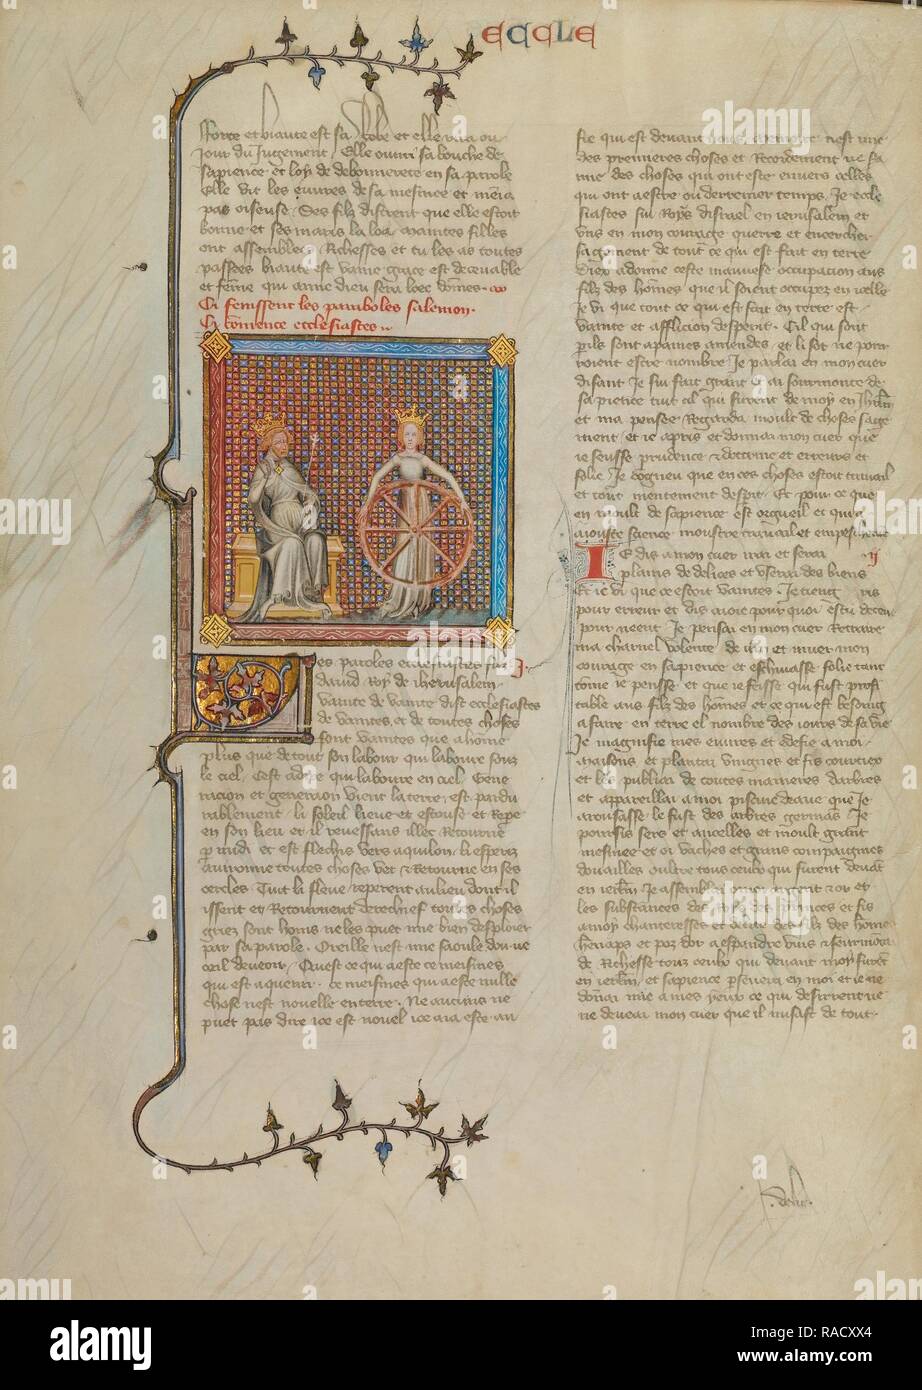 ECCLE
Force et biaute est sa robe et elle rira ou
jour du Jugement. Elle ouvri sa bouche de
sapience et loy de debonnerete en sa parole
Elle vit les euvres de sa mesnee et menia
pas oiseuse. Ses filz distrent que elle estoit
bonne et ses maris la loa. maintes filles
ont assemblees Richesses et tu les as toutes
passees biaute est vaine grace est decevable
et feme qui aime dieu sera loee domes.
Ci fenissent les paraboles salemon.
Ci comence ecclesiastes
es paroles ecclesiastes fiz
david Roy de iherusalem.
vanite de vanite dist ecclesiastes
de vanites et de toutes choses
sont vanites que a home
plus que de tout son labour qui laboure souz
le ciel. Cest adire qui laboure en ciel. Gene
racion et generaon vient la terre est pardu
rablement. li soleil lieve et escouse et Repe
en son lieu et il renessans illec Retourne
p midi et est flechis vers aquilon. li esperz
avironne toutes choses vet et Retourne en ses
cercles. Tuit li fleuve reperent au lieu dont il
issent et Retournent derechief toutes choses
griez sont homs ne les puet mie bien desploier
par sa parole. Oreille nest mie saoule doir ne
oeil de veoir. Quest ce qui a este ce meismes
qui est a quenir. ce meismes qui a este nulle
chose nest nouelle en terre. Ne aucuns ne
puet pas dire ice est nouel ice a ia este au
fie qui est devant nous memoire nest mie
des premieres choses et Recordement ne sa
mie des choses qui ont este envers celles
qui ont a estre ou derrenier temps. Je eccle
siastes fui Roys disrael en ierusalem et
vins en mon courage querre et encercher
sagement de tout ce qui est fait en terre
Diex a donne ceste mauvese occupacion aus
filz des homes que il soient occupez en icelle
Je vi que tout ce qui est fait en terre est
vanite et affliccion desperit. Cil qui sont
puls sont apaines amendes. et li sot ne pour
roient estre nombre Je parlai en mon cuer
disant Je sui fait grant et ai sourmonte de
sapience tuit cil qui furent de moy en Jhrlm
et ma pensee Regarda moult de choses sage
ment. et ie apris et donnai mon cuer que
ie seusse prudence et doctrine et erreurs et
folie. Je cogneu que en ces choses estoit travail
et tout mentement desperit. Et pour ce que
en moult de sapience est orgueil et qui
aiouste science moustre travail et empeschement
IE dis a mon cuer irai et serai ij
plains de delices et userai des biens
Et ie vi que ce estoit vanites. Je tieng ris
pour erreur et dis a ioie pour quoi es tu deceu
pour neent. Je pensai en mon cuer Retraire
ma charnel volente de vin et muer mon
courage en sapience et eschivasse folie tant
come ie pensse et que ie feisse qui fust profi
table aus filz des homes et ce qui est besoing
a faire en terre el nombre des iours de sa vie
Je magnifie mes euvres et edefie a moi
maisons et plantai vingnes et fis courtiex
et les publiai de toutes manieres darbres
et appareillai a moi piscine deaue que Je
arousasse le fust des arbres germans Je
poursis sers et ancelles et moult grant
mesniee et oi vaches et grans compaignies
douailles oultre tous ceulx qui furent devat
en ierlm Je assemblai argent et or et
les substances des Roys et des princes et fis
a moy chanteresses et delices des filz des homes
henaps et poz dor a espandre vins et seurmontai
de Richesse tous ceulx qui devant moy furet
en ierlm. et sapience psevera en moi et ie ne
donai mie a mes yeux ce qui desirrent ne
ne deveai mon cuer que il nusast de tout.
alamy
Image ID: RACXX4
www.alamy.com